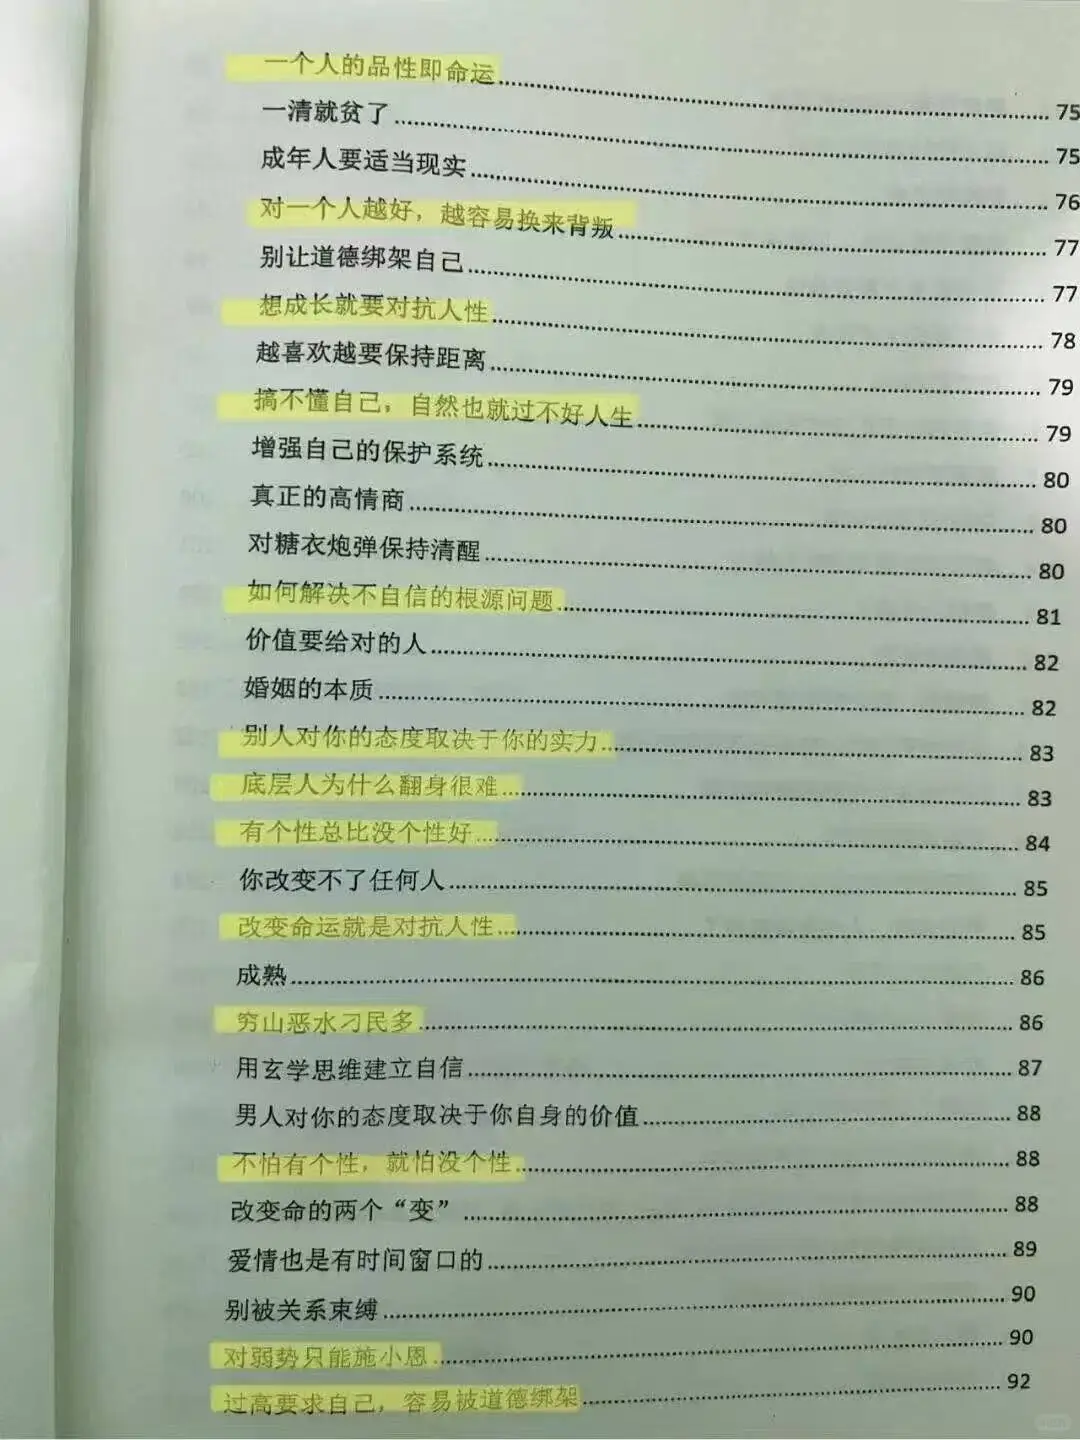 一个人的品性即命运……75
一清就贫了……75
成年人要适当现实……76
对一个人越好，越容易换来背叛……77
别让道德绑架自己……77
想成长就要对抗人性……78
越喜欢越要保持距离……79
搞不懂自己，自然也就过不好人生……79
增强自己的保护系统……80
真正的高情商……80
对糖衣炮弹保持清醒……80
如何解决不自信的根源问题……81
价值要给对的人……82
婚姻的本质……82
别人对你的态度取决于你的实力……83
底层人为什么翻身很难……83
有个性总比没个性好……84
你改变不了任何人……85
改变命运就是对抗人性……85
成熟……86
穷山恶水刁民多……86
用玄学思维建立自信……87
男人对你的态度取决于你自身的价值……88
不怕有个性，就怕没个性……88
改变命的两个“变”……88
爱情也是有时间窗口的……89
别被关系束缚……90
对弱势只能施小恩……90
过高要求自己，容易被道德绑架……92